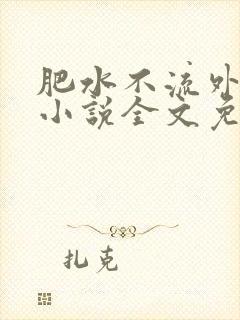 肥水不流外
小说全文免
扎克